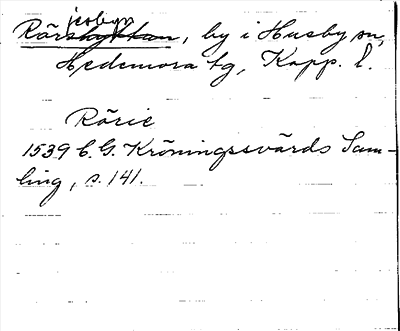 jesbyn
Rörshyttan, by i Husby sn,
Hedemora tg, Kopp. l.
Rörie
1539 C. G. Kröningssvärds Sam-
ling, s. 141.